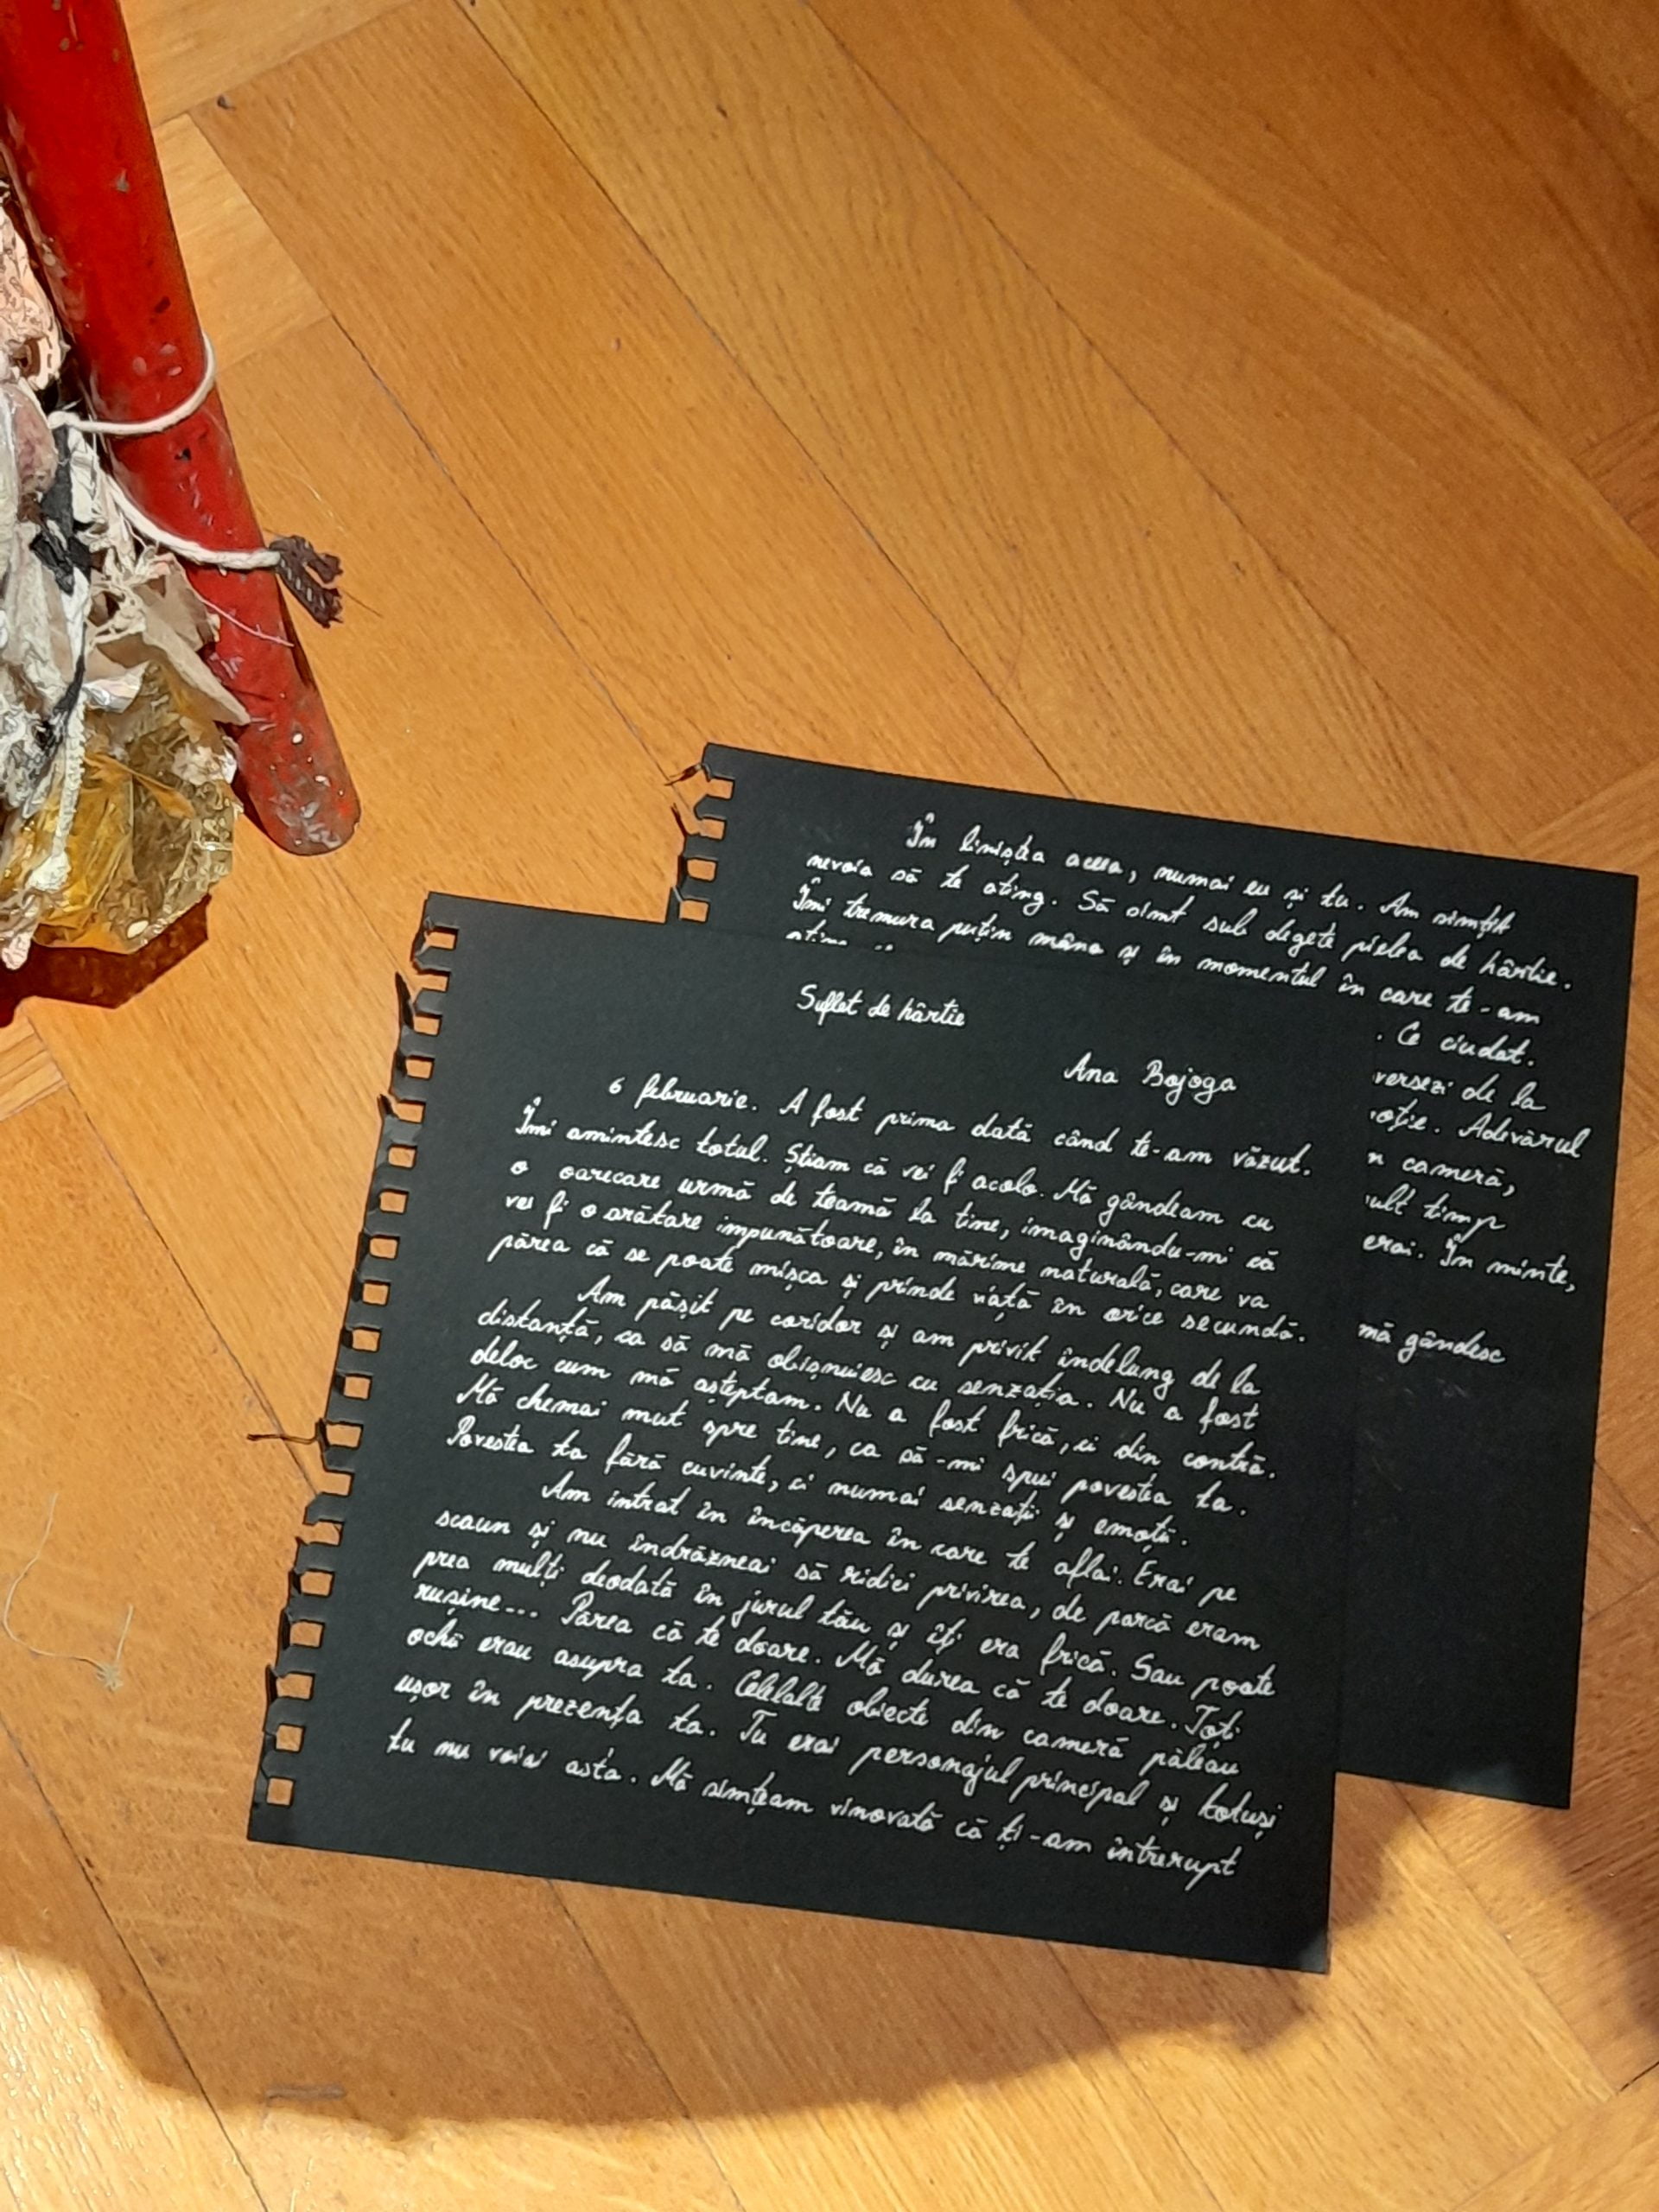 În liniștea aceea, numai eu și tu. Am simțit
nevoia să te ating. Să simt sub degete pielea de hârtie.
Îmi tremura puțin mâna și în momentul în care te-am
. Ce ciudat.
versezi de la
oție. Adevărul
n cameră,
ult timp
erai. În minte,
mă gândesc
Suflet de hârtie
Ana Bojoga
6 februarie. A fost prima dată când te-am văzut.
Îmi amintesc totul. Știam că vei fi acolo. Mă gândeam cu
o oarecare urmă de teamă la tine, imaginându-mi că
vei fi o arătare impunătoare, în mărime naturală, care va
părea că se poate mișca și prinde viață în orice secundă.
Am pășit pe coridor și am privit îndelung de la
distanță, ca să mă obișnuiesc cu senzația. Nu a fost
deloc cum mă așteptam. Nu a fost frică, ci din contră.
Mă chemai mut spre tine, ca să-mi spui povestea ta.
Povestea ta fără cuvinte, ci numai senzații și emoții.
Am intrat în încăperea în care te aflai. Erai pe
scaun și nu îndrăzneai să ridici privirea, de parcă eram
prea mulți deodată în jurul tău și îți era frică. Sau poate
rușine... Părea că te doare. Mă durea că te doare. Toți
ochii erau asupra ta. Celelalte obiecte din cameră păleau
ușor în prezența ta. Tu erai personajul principal și totuși
tu nu voiai asta. Mă simțeam vinovată că ți-am întrerupt